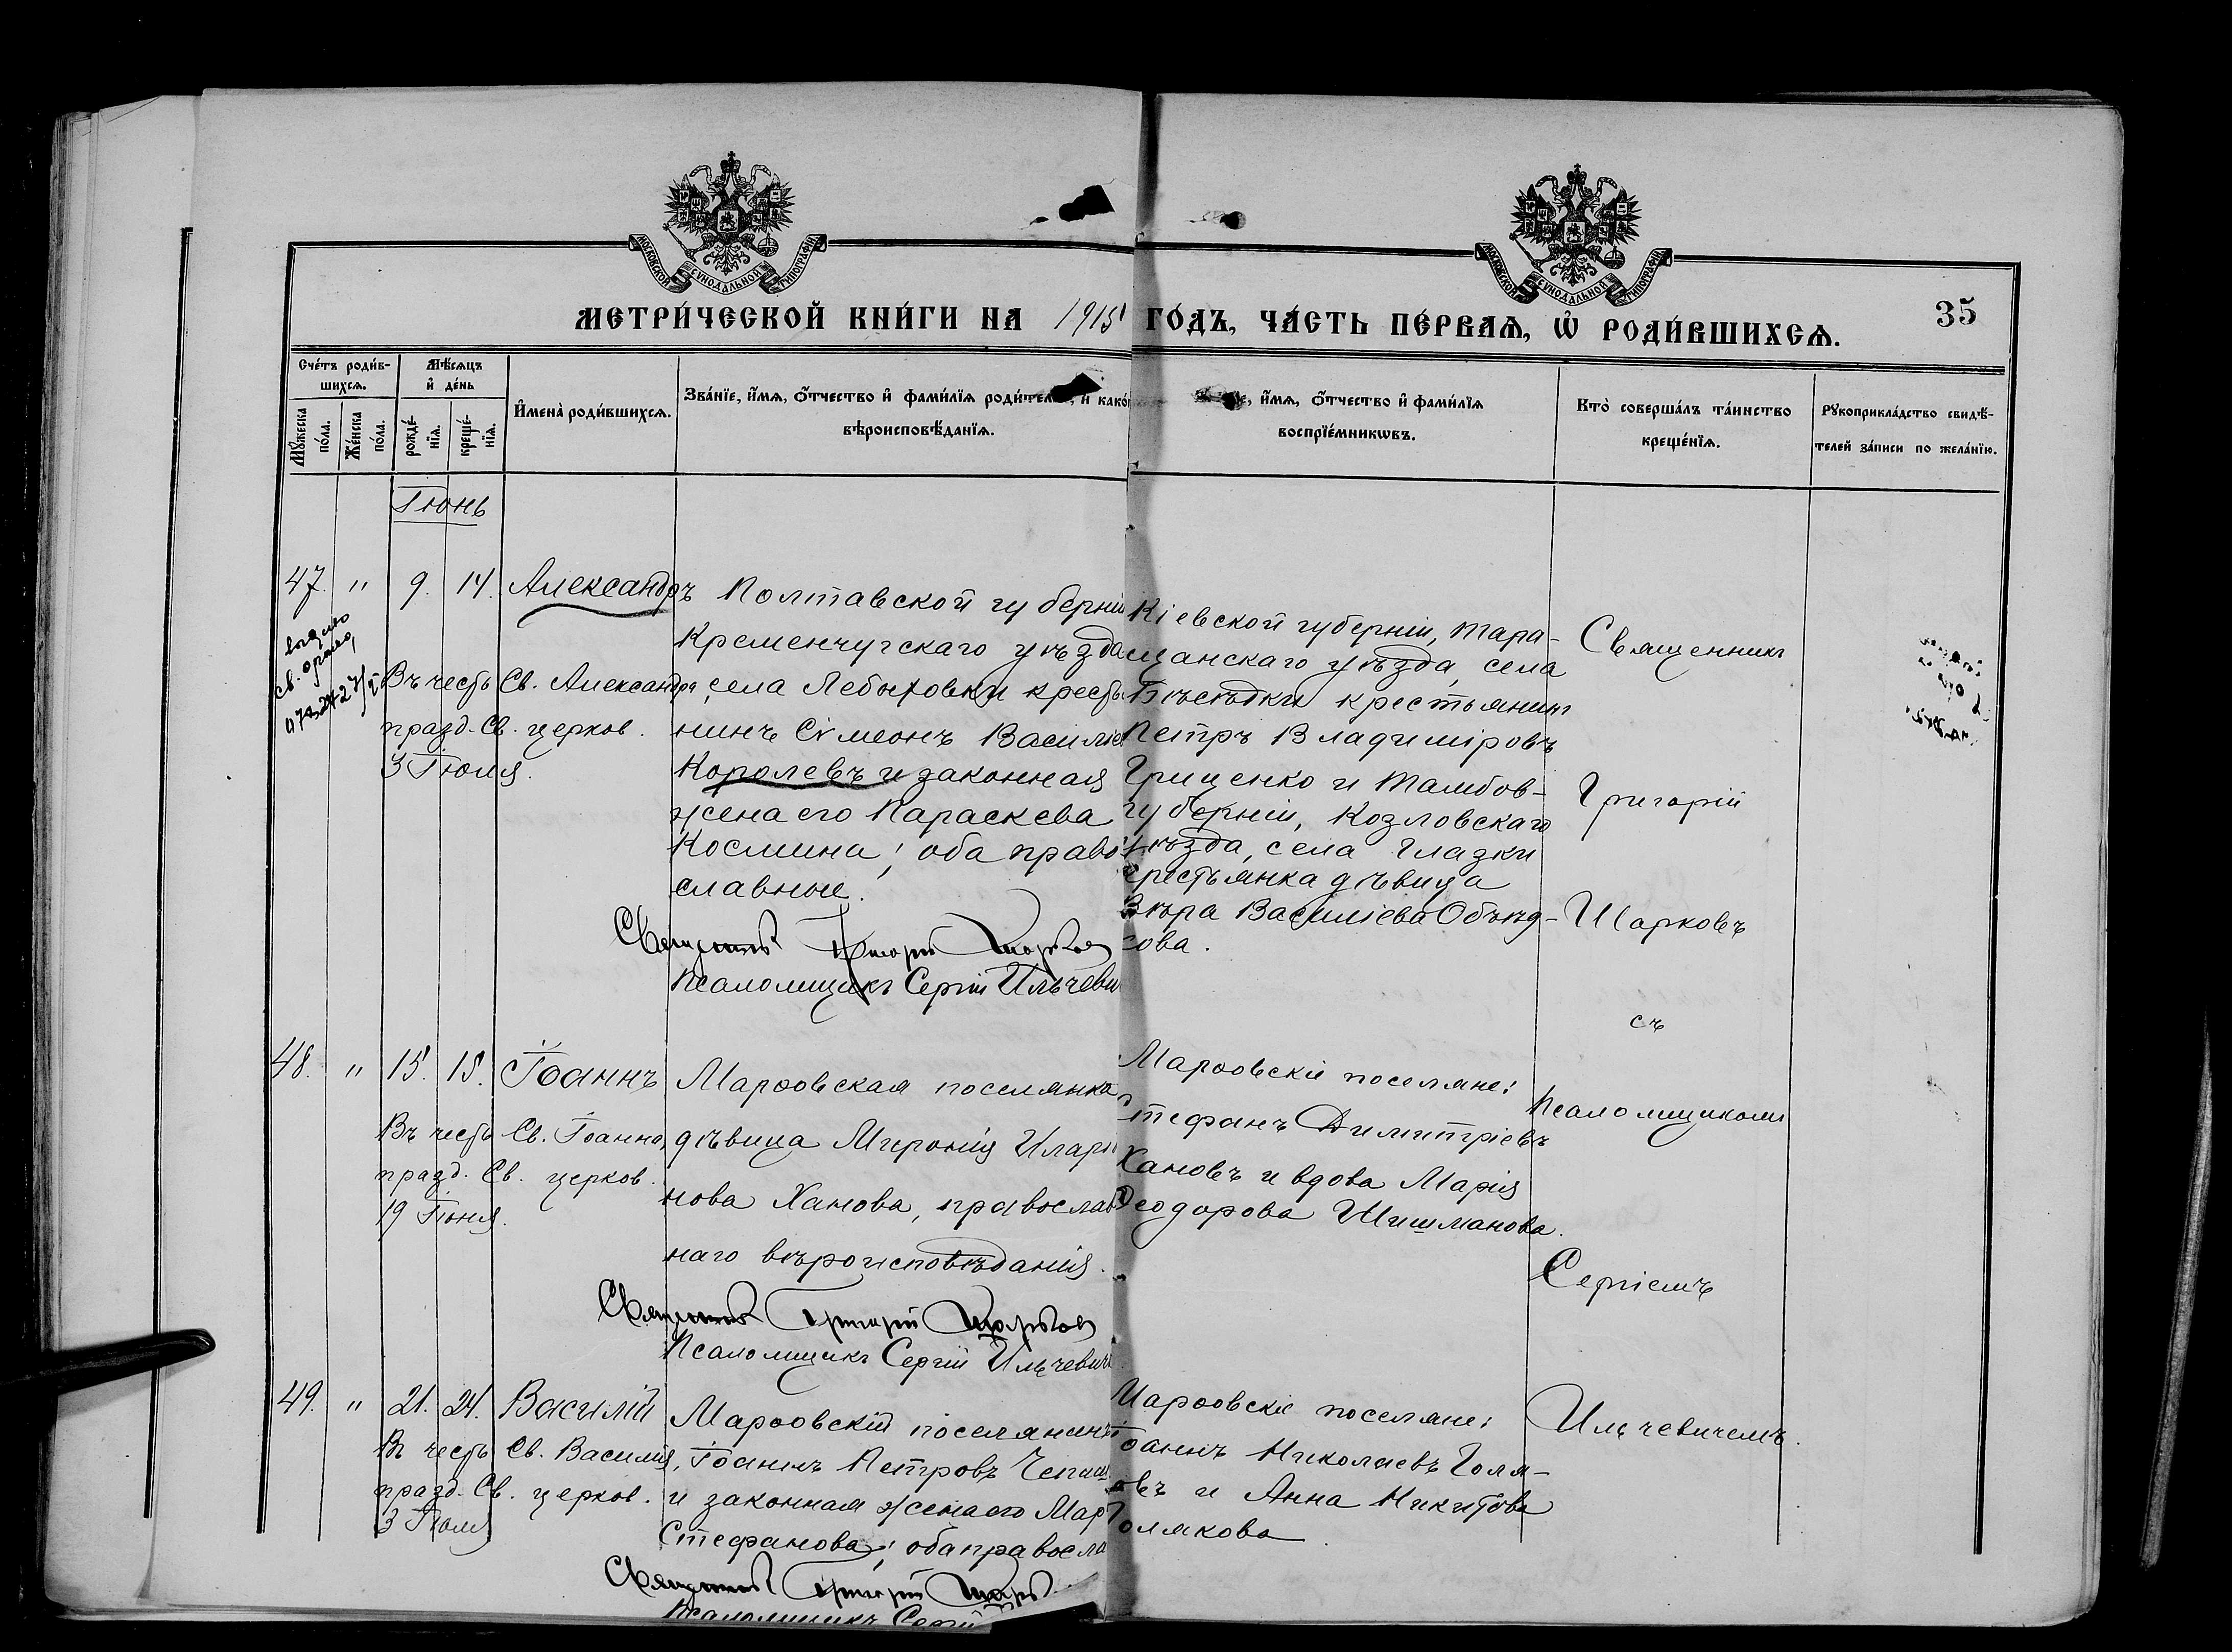 МОСКОВСКОЙ СѴНОДАЛЬНОЙ ТИПОГРАФІИ
МОСКОВСКОЙ СѴНОДАЛЬНОЙ ТИПОГРАФІИ
МЕТРИ́ЧЕСКОЙ КНИ́ГИ НА 1915 ГО́ДЪ, ЧА́СТЬ ПЕ́РВАЯ, Ѡ҆ РОДИ́ВШИХСЯ.
35
Сче́тъ роди́в-
шихся.
Му́жеска
по́ла.
Же́нска
по́ла.
Мѣ́сяцъ
и҆ де́нь
рожде́-
нїя.
креще́-
нїя.
И҆мена̀ роди́вшихся.
Зва́нїе, и҆́мя, ѻ҆́тчество и҆ фами́лїя роди́телей, и҆ како́
вѣроисповѣ́данїя.
и҆́мя, ѻ҆́тчество и҆ фами́лїя
воспрїе́мникѡвъ.
Кто̀ соверша́лъ та́инство
креще́нїя.
Рꙋкоприкла́дство свидѣ́-
телей за́писи по жела́нїю.
Іюнь
47. " 9. 14. Александръ
Въ честь Св. Александра,
празд. Св. церков.
3 Іюля.
Полтавской губерніи
Кременчугскаго уѣзда
села Лебыховки кресть
нинъ Сѵмеонъ Василіев
Королевъ и законная
жена его Параскева
Космина; оба право
славные.
Священникъ Григорій Шарков
Псаломщикъ Сергій Ильчеви
Кіевской губерніи, Тара-
щанскаго уѣзда, села
Бѣсѣдки крестьянинъ
Петръ Владиміровъ
Грищенко и Тамбов-
губерніи, Козловскаго
уѣзда, села Глазки
крестьянка дѣвица
Вѣра Василіева Объед-
сова.
Священникъ
Григорій
Шарковъ
съ
Псаломщикомъ
Сергіемъ
Ильчевичемъ.
48. " 15. 15. Іоаннъ
Въ честь Св. Іоанна,
празд. Св. церков.
19 Іюня.
Марѳовская поселянка
дѣвица Миронія Илари
нова Ханова, православ
наго вѣроисповѣданія.
Священникъ Григорій Шарков
Псаломщикъ Сергій Ильчевичъ
Марѳовскіе поселяне:
Стефанъ Димитріевъ
Хановъ и вдова Марія
Ѳеодорова Шишманова.
49. " 21. 24. Василій
Въ честь Св. Василія,
празд. Св. церков.
3 Іюля
Марѳовскій поселянинъ
Іоаннъ Петровъ
и законная жена его Мар
Стефанова; оба правосла
Священникъ Григорій Шарк
Псаломщикъ Сергій
Марѳовскіе поселяне:
Іоаннъ Николаевъ Поля-
овъ и Анна Никитова
олякова